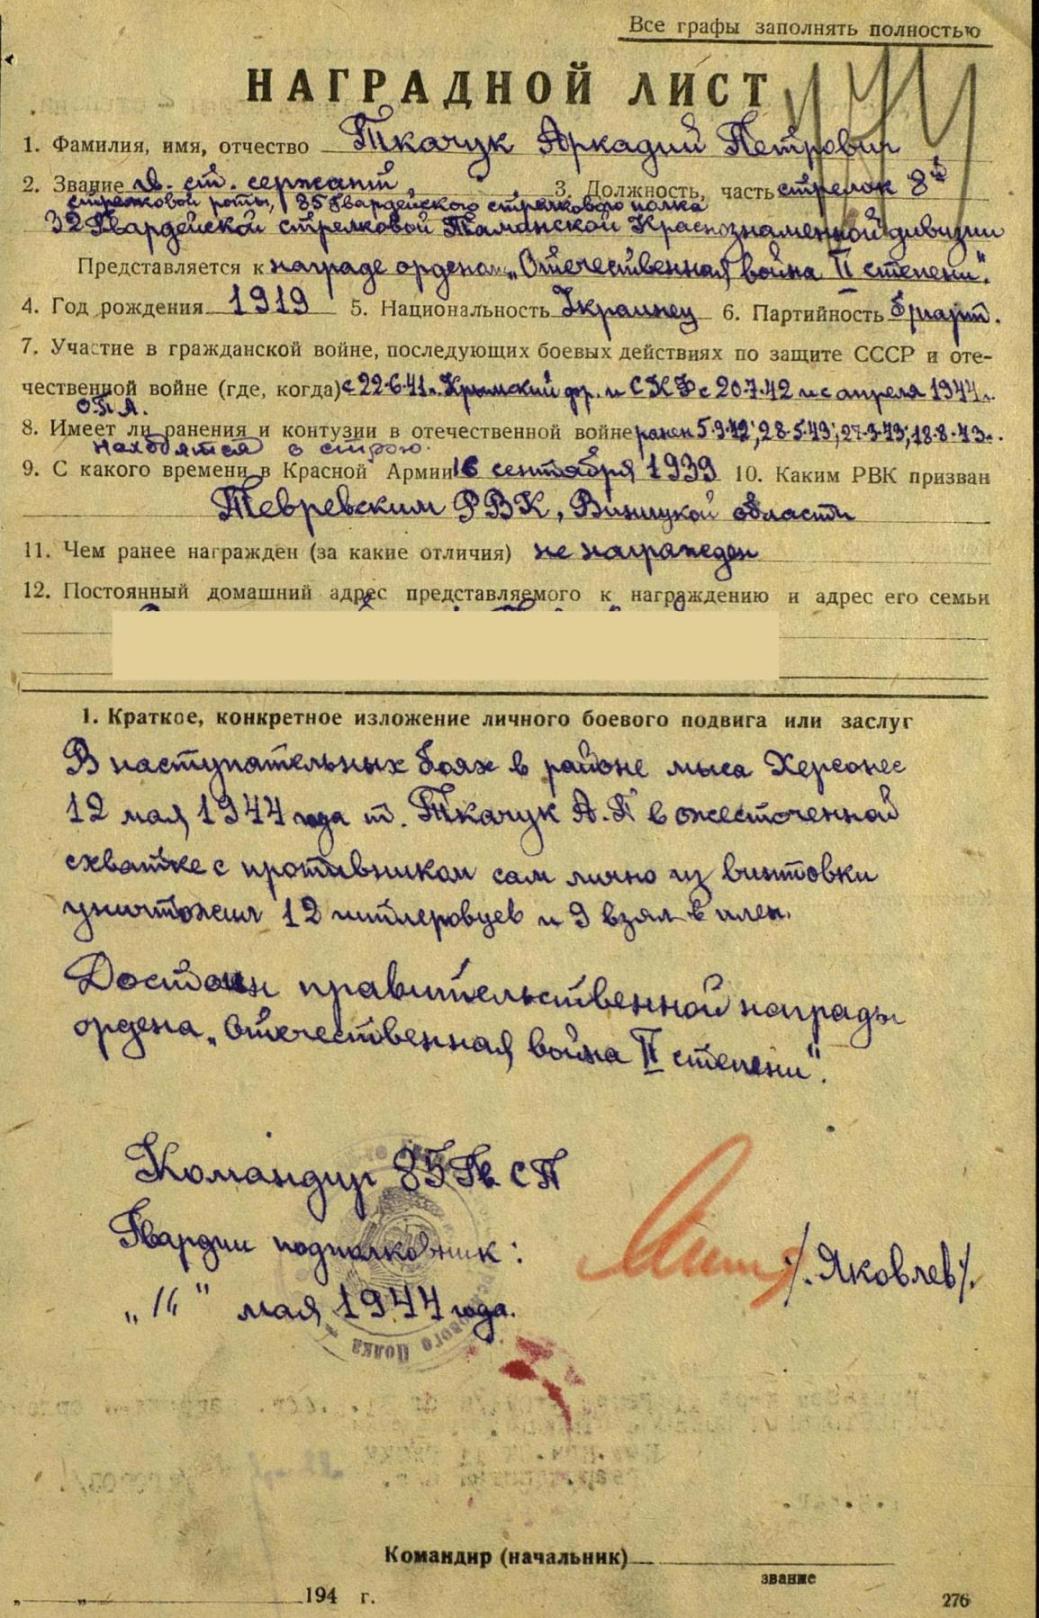 Все графы заполнять полностью
НАГРАДНОЙ ЛИСТ
1. Фамилия, имя, отчество Ткачук Аркадий Петрович
2. Звание гв. ст. сержант, 3. Должность, часть стрелок 8й
стрелковой роты, 85 Гвардейского стрелкового полка
32 Гвардейской стрелковой Таманской Краснознаменной дивизии
Представляется к награде орденом „Отечественная война II степени".
4. Год рождения 1919 5. Национальность Украинец 6. Партийность б/парт.
7. Участие в гражданской войне, последующих боевых действиях по защите СССР и оте-
чественной войне (где, когда) с 22.6.41г. Крымский фр. и СКФ с 20.7.42 и с апреля 1944г.
О.П.А.
8. Имеет ли ранения и контузии в отечественной войне ранен 5.9.42; 28.5.43; 27.3.43; 18.8.43г.
находятся в строю.
9. С какого времени в Красной Армии 16 сентября 1939 10. Каким РВК призван
Тевревским РВК, Виницкой области
11. Чем ранее награжден (за какие отличия) не награжеден
12. Постоянный домашний адрес представляемого к награждению и адрес его семьи
1. Краткое, конкретное изложение личного боевого подвига или заслуг
В наступательных боях в районе мыса Херсонес
12 мая 1944 года т. Ткачук А.П в ожесточенной
схватке с противником сам лично из винтовки
уничтожил 12 гитлеровцев и 9 взял в плен.
Достоин правительственной награды
ордена „Отечественная война II степени".
Командир 85 Гв СП
Гвардии подполковник: /. Яковлев/.
„16" мая 1944 года.
Полка
Командир (начальник)
звание
„ „ 194 г.
276